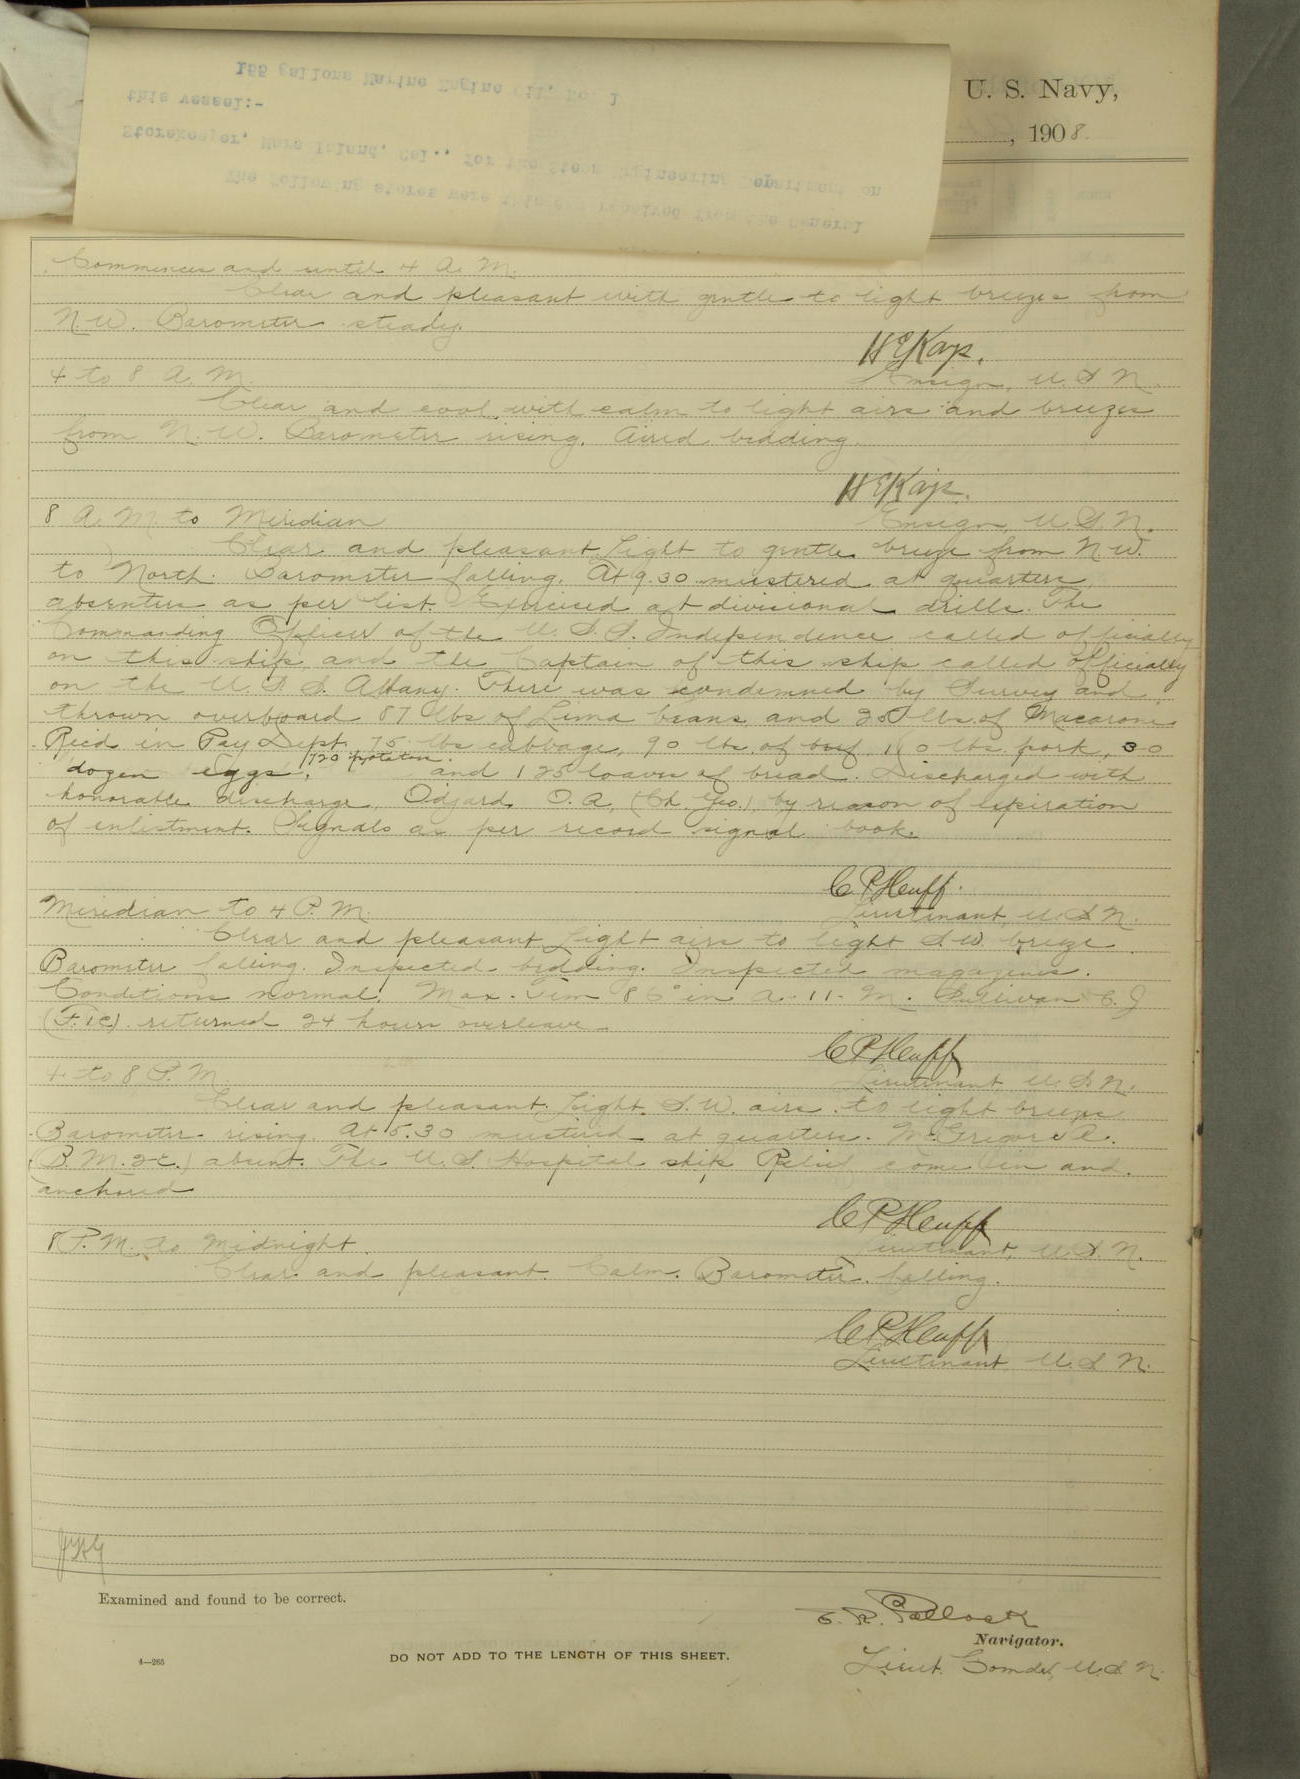 U. S. Navy,
, 1908.
The following stores were this day received from the General
Storekeeper, Mare Island, Cal., for the Steam Engineering Department on
this vessel:-
155 gallons Marine Engine Oil, No. 1
Commences and until 4 A. M.
Clear and pleasant with gentle to light breezes from
N. W. Barometer steady.
H E Kays.
4 to 8 A. M.
Ensign, U. S. N.
Clear and cool with calm to light airs and breezes
from N. W. Barometer rising. Aired bedding.
H E Kays.
8 A. M. to Meridian
Ensign, U. S. N.
Clear and pleasant Light to gentle breeze from N W.
to North. Barometer falling. At 9.30 mustered at quarters
absentees as per list. Exercised at divisional drills. The
Commanding Officer of the U. S. S. Independence called officially
on this ship and the Captain of this ship called officially
on the U. S. S. Albany. There was condemned by Survey and
thrown overboard 87 lbs of Lima beans and 250 lbs. of Macaroni
Rec'd in Pay Dept. 75 lbs cabbage, 90 lbs of beef, 110 lbs. pork, 30
dozen eggs, 720 potatoes. and 125 loaves of bread. Discharged with
honorable discharge, Odjard, O. A, (Ch. Yeo.) by reason of expiration
of enlistment. Signals as per record signal book.
C P Huff.
Meridian to 4 P. M.
Lieutenant, U. S. N.
Clear and pleasant Light airs to light S. W. breeze
Barometer falling. Inspected bedding. Inspected magazines.
Conditions normal. Max. Tem 86° in A-11-M. Sullivan C. J
(F. 1c) returned 24 hours overleave
C P Huff
4 to 8 P. M.
Lieutenant, U. S. N.
Clear and pleasant. Light S. W. airs to light breeze
Barometer rising. At 5.30 mustered at quarters. McGregor A.
(B. M. 2-c.) absent. The U. S. Hospital ship Relief come in and
anchored
C P Huff
8 P. M. to Midnight.
Lieutenant, U. S. N.
Clear and pleasant. Calm. Barometer falling.
C P Huff
Lieutenant U. S. N.
Examined and found to be correct.
E. R. Pollock
Navigator.
4—265
DO NOT ADD TO THE LENGTH OF THIS SHEET.
Lieut. Comdr, U. S. N.